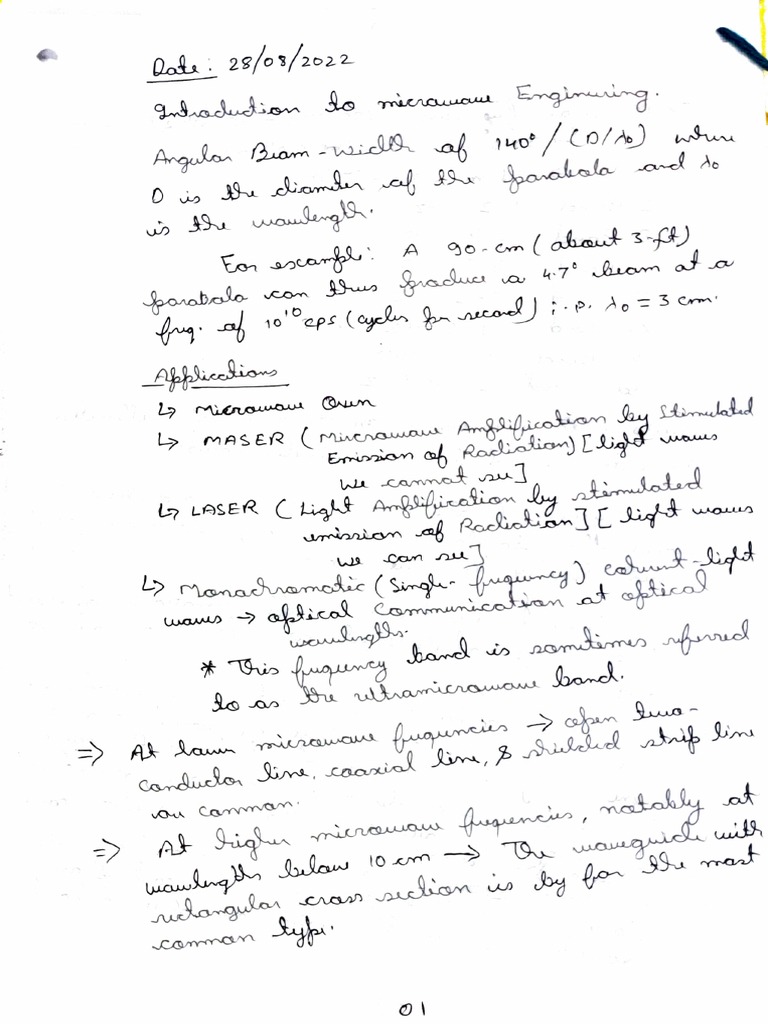 Date: 28/08/2022
Introduction to microwave Engineering.
Angular Beam-width of 140°/(D/λ₀) where
D is the diameter of the parabola and λ₀
is the wavelength.
For example: A 90-cm (about 3-ft)
parabola can thus produce a 4.7° beam at a
freq. of 10¹⁰ cps (cycles per second) i.e. λ₀ = 3 cm.
Applications
↳ Microwave Oven
↳ MASER (Microwave Amplification by Stimulated
Emission of Radiation) [light waves
we cannot see]
↳ LASER (Light Amplification by stimulated
emission of Radiation] [light waves
we can see]
↳ Monochromatic (Single-frequency) coherent-light
waves → optical communication at optical
wavelengths.
* This frequency band is sometimes referred
to as the ultramicrowave band.
⇒ At lower microwave frequencies → open two-
conductor line, coaxial line, & shielded strip line
are common.
⇒ At higher microwave frequencies, notably at
wavelengths below 10 cm → The waveguide with
rectangular cross section is by far the most
common type.
01